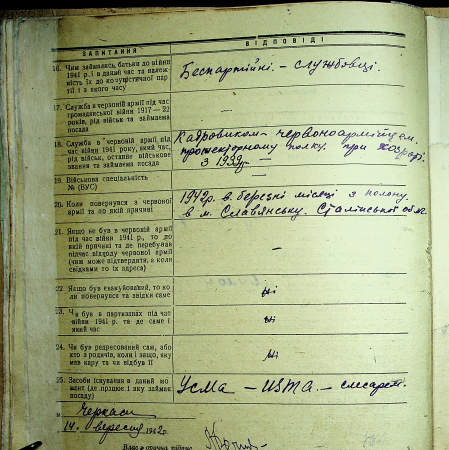 ЗАПИТАННЯ
ВІДПОВІДІ
16. Чим займались батьки до війни
1941 р. і в даний час та належ-
ність їх до комуністичної пар-
тії і в якого часу
Беспартійні. – службовці.
17. Служба в червоній армії під час
громадянської війни 1917—22
років, рід військ та займаєма
посада
—
18. Служба в червоній армії під
час війни 1941 року, який час,
рід військ, останнє військове
звання та займаєма посада
Кадровиком – червоноармійцем.
прожекторному полку. при
з 1939р. —
19. Військова спеціальність
№ (ВУС)
—
20. Коли повернувся з червоної
армії та по якій причині
1942р. в березні місяці з полону
в м. Славянську. Сталінської обл
21. Якщо не був в червоній армії
під час війни 1941 р., то до
якій причині та де перебував
підчас відходу червоної армії
(чим може підтвердити, а коли
свідками то їх адреса)
—
22. Якщо був евакуйований, то ко-
ли повернувся та звідки саме
Ні
23. Чи був в партизанах під час
війни 1941 р. та де саме і
який час
Ні
24. Чи був репресований сам, або
хто з родичів, коли і защо, яку
мав кару та чи відбув її
Ні
25. Засоби існування в даний мо-
мент (де працює і яку займає
посаду)
– слесарем.
м. Черкаси
14. вересня 1942 р.